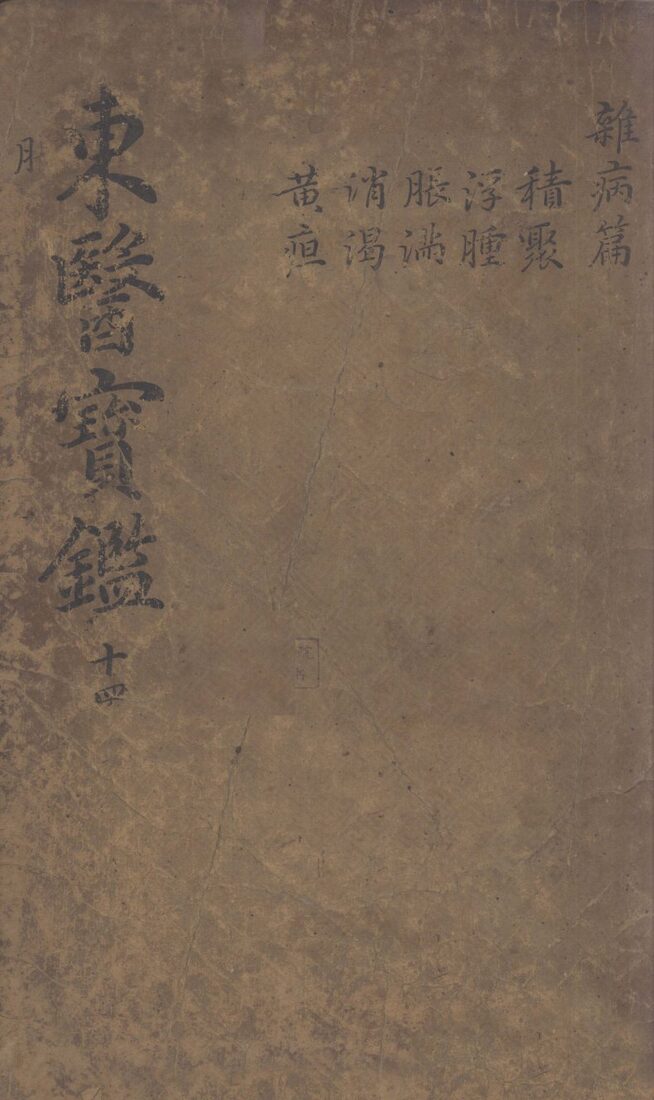 雜病篇
積聚
浮腫
脹滿
消渴
黃疸
東醫寶鑑 十四
月